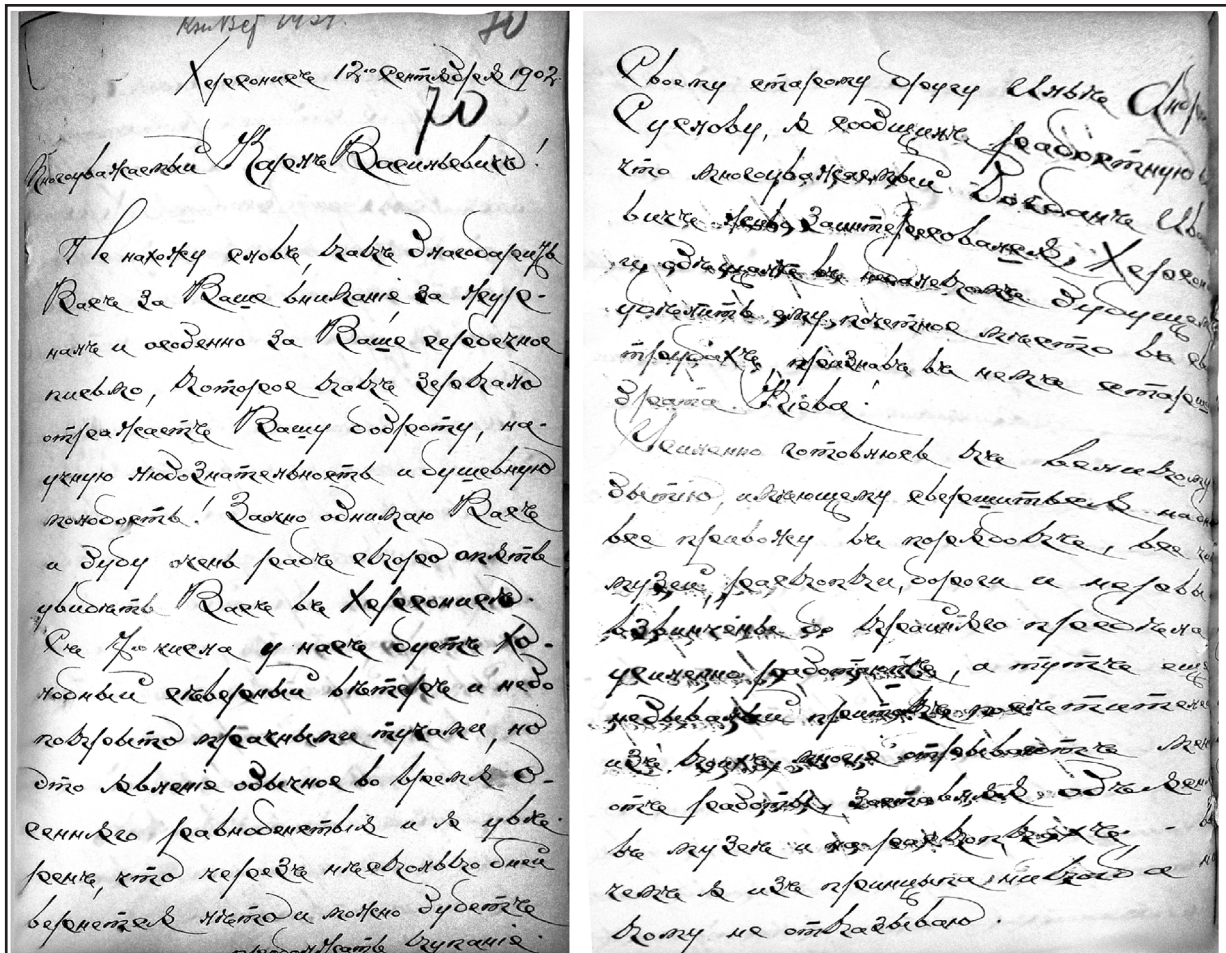 70
Херсонисъ 12го Сентября 1902.
70
Многоуважаемый Карлъ Васильевичъ!
Не нахожу словъ, какъ благодарить
Васъ за Ваше вниманіе, за жур-
налъ и особенно за Ваше сердечное
письмо, которое какъ зеркало
отражаетъ Вашу доброту, на-
учную любознательность и душевную
молодость! Заочно обнимаю Васъ
и буду очень радъ скоро опять
увидѣть Васъ въ Херсонисѣ.
Съ 7го числа у насъ дуетъ хо-
лодный сѣверный вѣтеръ и небо
покрыто мрачными тучами, но
это явленіе обычное во время о-
сенняго равноденствія и я увѣ-
ренъ, что черезъ нѣсколько дней
вернется лѣто и можно будетъ
продолжать купаніе.
Своему старому другу Ильѣ
Суслову, я сообщилъ радостную
что многоуважаемый Богданъ
вичъ заинтересовался
и обѣщалъ въ недалекомъ будущемъ
удѣлить ему почетное мѣсто въ
трудахъ, признавъ въ немъ
брата Кіева!
Усиленно готовлюсь къ великому
бытію, имѣющему свершиться
все привожу въ порядокъ, все
музей, раскопки, дороги и
взвинчены до крайняго предѣла
усиленно работаютъ, а тутъ ещ
небывалый притокъ посѣтителе
изъ коихъ многіе отрываютъ мен
отъ работы, заставляя
въ музеѣ и на раскопкахъ,
чемъ я изъ принципа никогда
кому не отказываю.